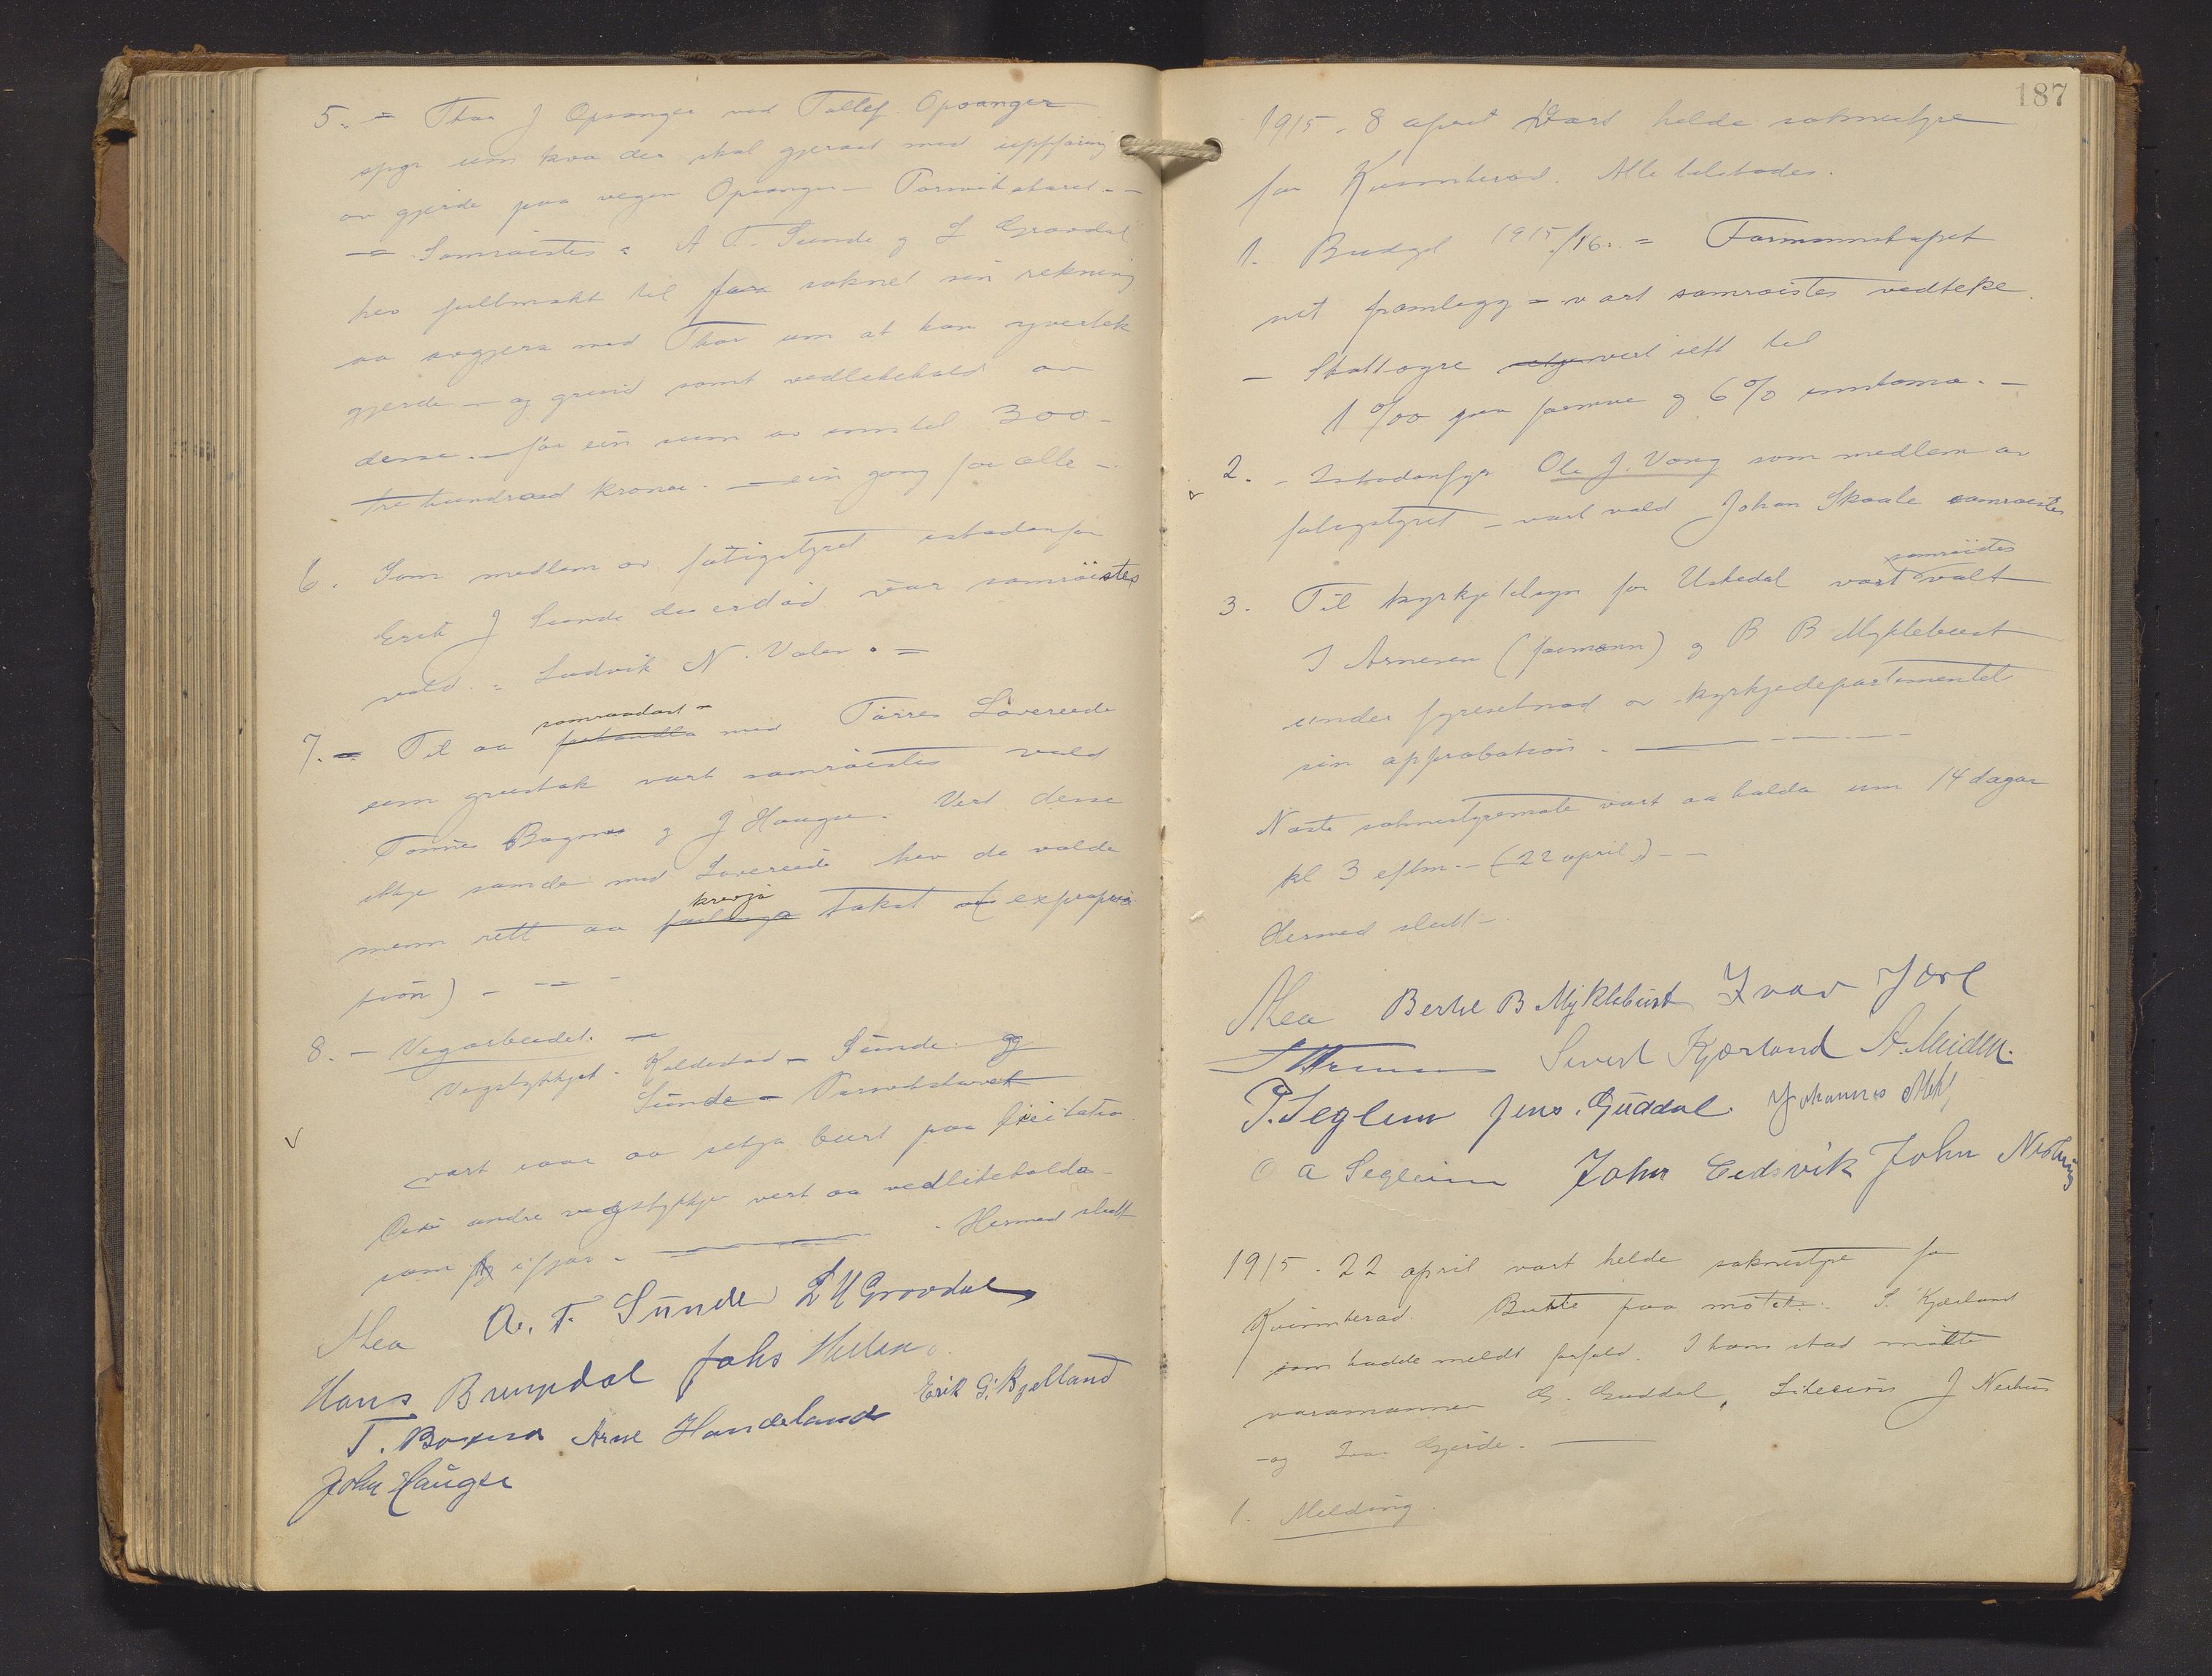 5. - Thor J Opsanger ved Tollef Opsanger
spyr um kva der skal gjerast med uppføring
av gjerde paa vegen Opsanger - Porsvikskaret. -
- Samrøistes: A T. Sunde og L Grovdal
hev fullmakt til fara soknet sin rekning
aa avgjera med Thor um at han yvertek
gjerde - og grund samt vedlikehald av
desse. - for ein sum av inntil 300 -
tre hundrad kronor. - ein gong for alle -
6. Som medlem av fatigstyret istadenfor
Erik J Sunde der er død var samrøistes
vald: Ludvik N. Valen. =
7. - Til aa forhandla samraadast - med Tørres Løvereide
um grustak vart samrøistes vald
Tønnes Bogsnes og J Haugse. Vert desse
ikkje samde med Løvereide hev de valde
menn rett aa forlanga krevja takst (expropria
sion) - - -
8. - Vegarbeidet. -
Vegstykkjet - Koldestad - Sunde og
Sunde - Porsvikskaret
vart iaar aa setja burt paa licitation.
Dei andre vegstykkje vert aa vedlikehalda -
som fy ifjor. - Hermed slutt
Mea A. T. Sunde L H Grovdal
Hans Brundal Johs Milen.
T. Bogsnes Arne Handeland Erik G. Kjelland
John Haugse
187
1915. 8 april Vart helde soknestyre
for Kvinnherad. Alle tilstades.
1. Budget 1915/16. = Formannskapet
sit framlegg - vart samrøistes vedteke.
- Skattøyre vert sett til
1 0/00 paa formue og 6% inntoma. -
2. - Istadenfyr Ole J. Vang som medlem av
fatigstyret - vart vald Johan Skaale samrøistes
3. Til kyrkjetilsyn for Uskedal vart samrøistes valt
I Arnesen (formann) og B B Myklebust
under fyresetnad av kyrkjedepartementet
sin approbation. -
Næste soknestyremøte vart aa halda um 14 dagar
kl 3 eftm. - (22 april) - -
Hermed slutt -
Mea Bertel B Myklebust Ivar Jørl
Sivert Kjærland A. Meidell.
P. Seglem Jens. Guddal. Johannes Mehl
O A Segleim John Eidsvik John Nerhus
1915. 22 april vart helde soknestyre for
Kvinnherad. Burte paa møtet: S. Kjærland
som hadde meldt forfald. I hans stad møtte
varamannen G. Guddal, Likeeins J Nerhus
- og Ivar Gjerde. -
1. Melding.